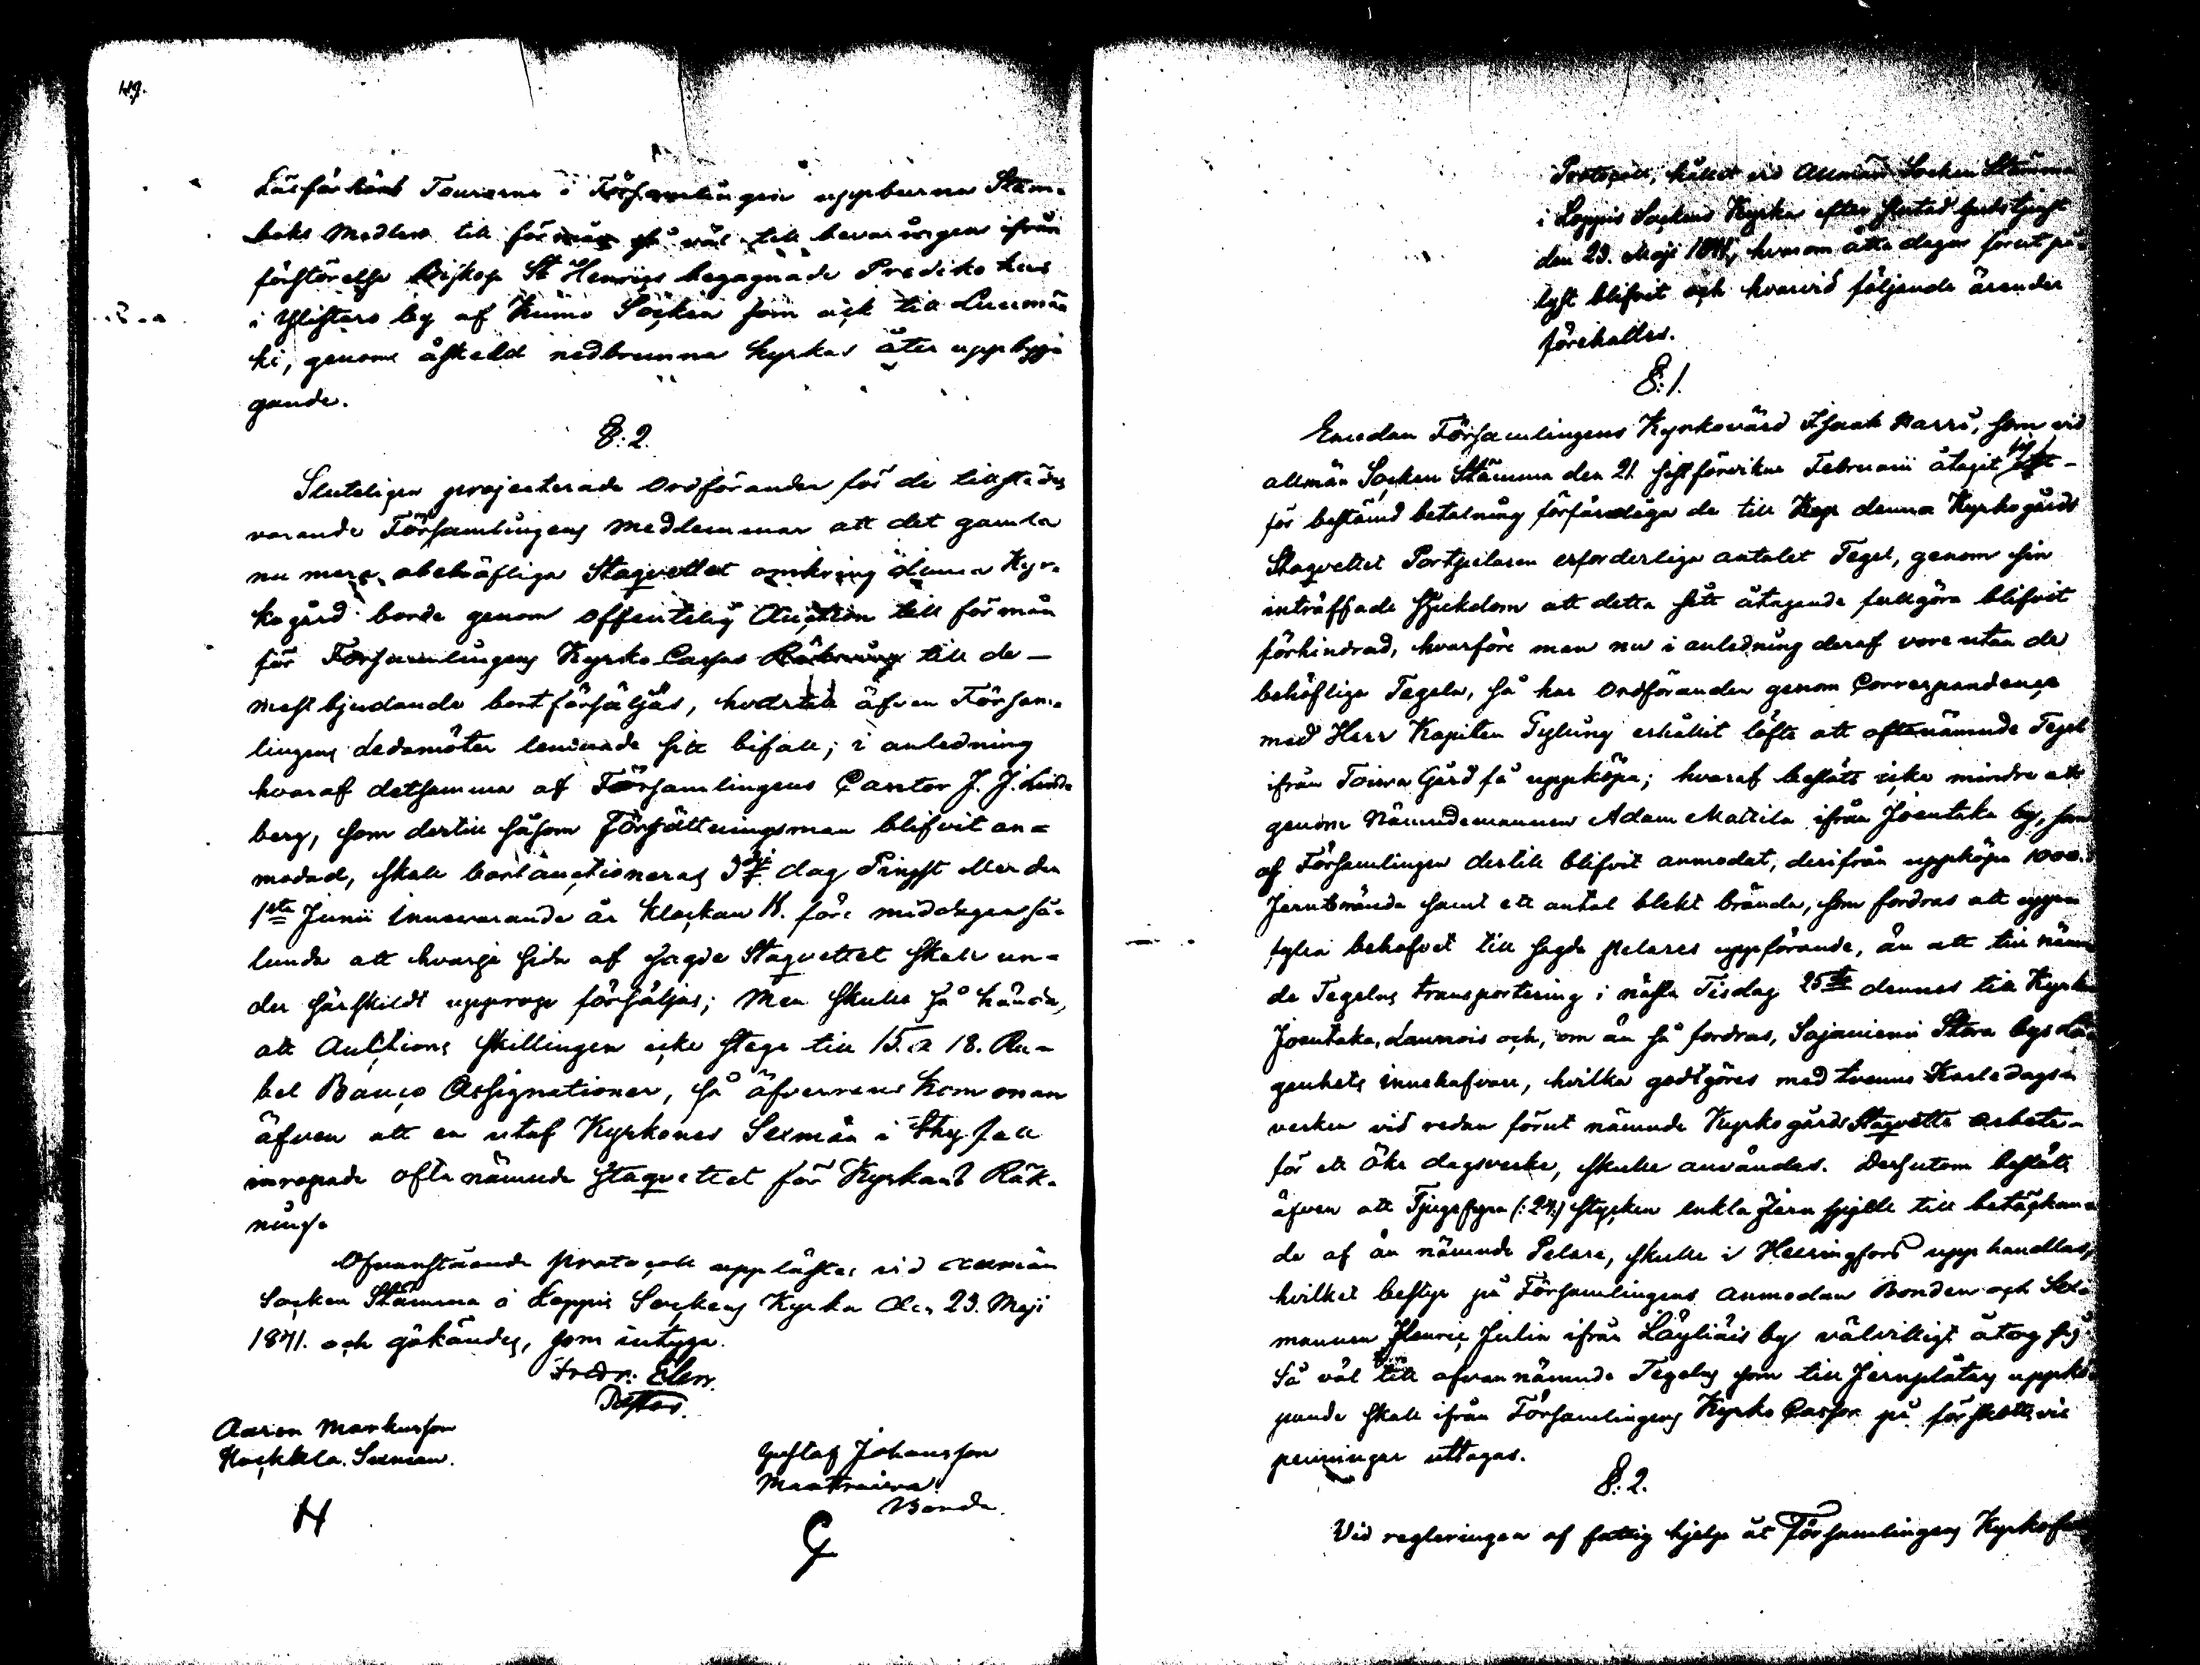 49.
Läsförhörs Tourerne i Församlingen uppburna Stam-
boks Medlen till förmån så väl till bevaringen ifrån
förstörelse Biskop St Henrigs begagnade Prediko hus
i Ylistaro by af Kumo Socken som ock till Luumä
ki, genom åskeld nedbrunna kyrkas åter uppbyg-
gande.
§: 2.
Sluteligen projecterade Ordföranden för de tillstädes
varande Församlingens medlemmar att det gamla
nu mera obehöfliga Staquettet omkring denna Kyr-
kogård borde genom offentelig Auction till förmån
för Församlingens Kyrko Cassas Räkning till de-
mest bjudande bortförsäljas, hvartill äfven Försam-
lingens Ledamöter lemnade sitt bifall; i anledning
hvaraf detsamma af Församlingens Cantor J. J. Lind-
berg, som dertill såsom Förrättningsman blifvit an-
modad, skall bortauctioneras 3dje dag Pingst eller den
1sta Junii innevarande år klockan 11. före middagen så-
lunda att hvarje sida af sagde Staquettet skall un-
der särskildt upprop försäljas; Men skulle så hända,
att Auctions skillingen icke stege till 15. a 18. Ru-
bel Banco Assignationer, så äfverens kom man
äfven att en utaf Kyrkones Sexmän i thy fall
inropade ofta nämnde Staquettet för Kyrkans Räk-
ning.
Ofvanstående protocoll upplästes vid allmän
Socken Stämma i Loppis Sockens Kyrka den 23. Maji
1841. och gökändes, som intyga.
Fredr: Elenr.
Pastor.
Aaron Markusson
Hockkla. Sexman.
Gustaf Johansson
Manttraisva
Bonde.
H
G
Protocoll, hållet vid Allmän Socken Stämma
i Loppis Sockens Kyrka efter slutad Gudstjenst
den 23. Maji 1841, hvarom åtta dagar förut på-
lyst blifvit och hvarvid följande ärender
förehaltes.
§: 1.
Emedan Församlingens Kyrkovärd Isaak Narri, som vid
allmän Socken Stämma den 21. sistförvikne Februarii åtagit sig
för bestämd betalning förfärdiga de till denna Kyrkogårds
Staquettet Portpelaren erforderliga antalet Tegel, genom sin
inträffade sjukdom att detta sitt åtagande fullgöra blifvit
förhindrad, hvarföre man nu i anledning deraf vore utan de
behöfliga Tegeln, så har Ordföranden genom Correspondence
med Herr Kapiten Tylung erhållit löfte att oftanämnde Tegel
ifrån Toivva Gård få uppköpa; hvaraf beslöts icke mindre att
genom Nämndemannen Adam Mattila ifrån Joentaka by, som
af Församlingen dertill blifvit anmodat, derifrån uppköpa 1000.
Jernbrända samt ett antal blekt brända, som fordras att upp-
fylla behofvet till sagde pelares uppförande, än att till nämn
de Tegelns transportering i nästa Tisdag 25te dennes till Kyrkan
Joentaka, Launois och, om än så fordras, Sajaniemi Stora bys Lä-
genhets innehafvare, hvilka godtgöres med tvenne Karledags-
verken vid redan förut nämnde Kyrkogårds Staquetts arbete-
för ett Öke dagsverke, skulle användas. Dessutom beslöts
äfven att Tjugofyra (:24:) stycken enkla Jern spjell till betäckan-
de af än nämnde Pelare, skulle i Helsingfors upphandlas,
hvilket bestyr på Församlingens anmodan Bonden och Sex-
mannen Henric Julin ifrån Läyliäis by välvilligt åtog sig.
Så väl till ofvannämnde Tegelns som till Jernplåtars uppkö-
pande skall ifrån Församlingens Kyrko Cassa på förskottsvis
penningar uttagas.
§: 2.
Vid regleringen af fattig hjelp åt Församlingens